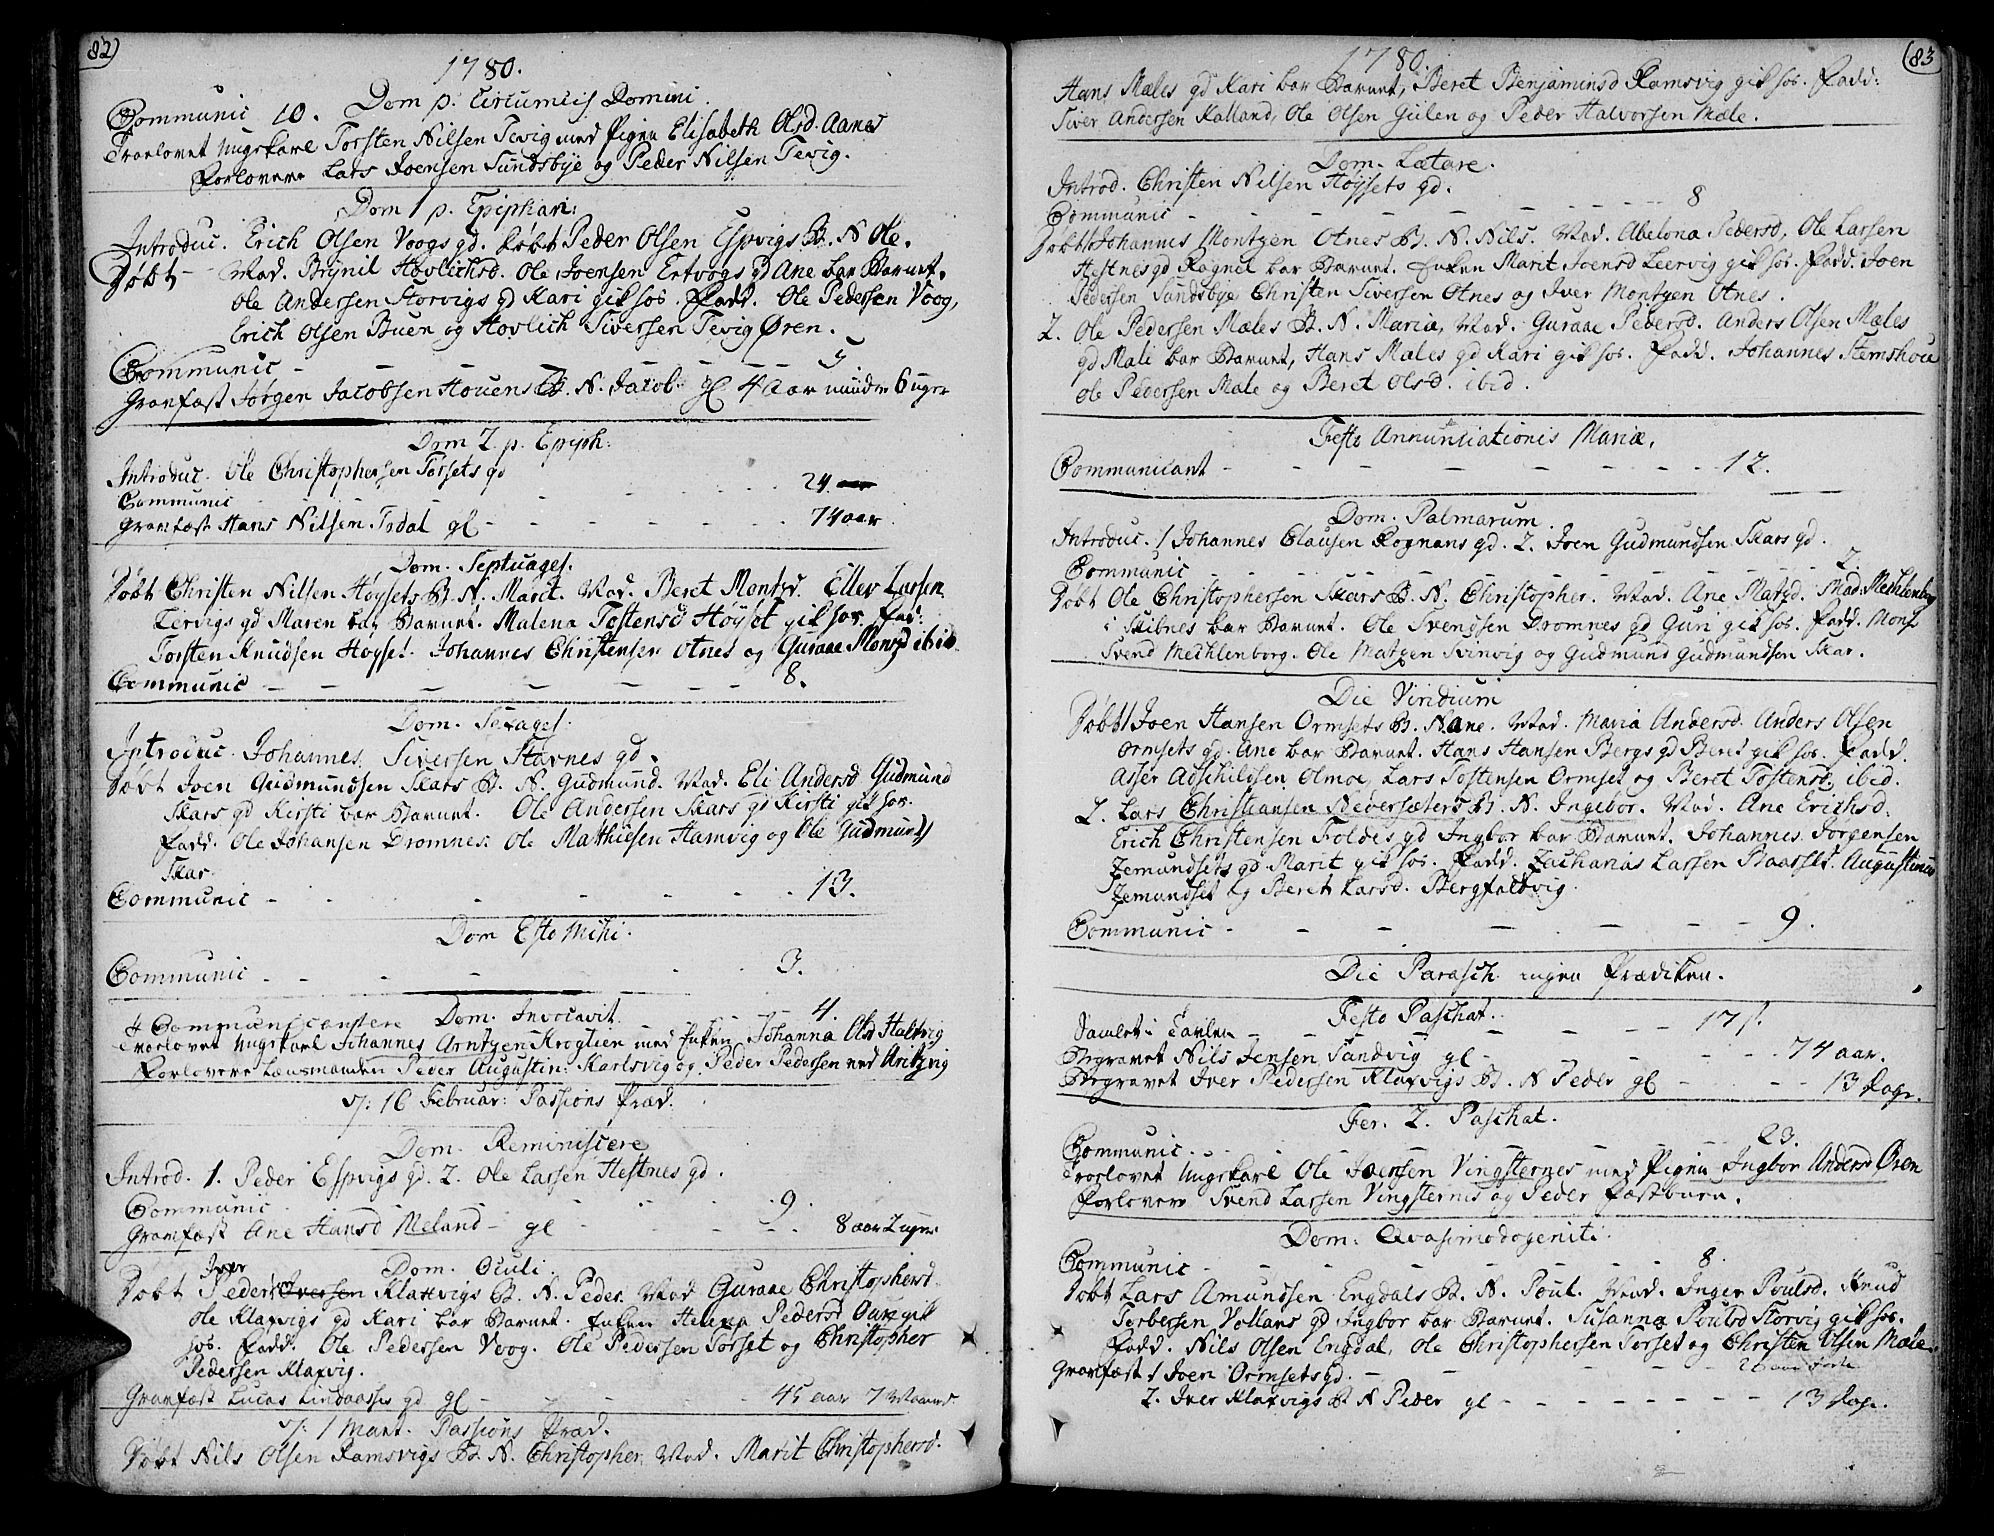 82)
1780.
Dom p. Circumcis Domini.
Communic 10.
Troelovet Ungkarl Torsten Nilsen Tevig med Pigen Elisabeth Olsd. Aanes
Forlovere Lars Joensen Sundsbye og Peder Nilsen Tevig.
Dom 1 p. Epiphan:
Introduc. Erich Olsen Voogs gd. Døbt Peder Olsen Espvigs B. N. Ole.
Døbt - Mod. Brynil Hovlichsd. Ole Joensen Ertvogs gd Ane bar Barnet.
Ole Andersen Storvigs gd Kari gik hos. Fadd. Ole Pedersen Voog,
Erich Olsen Buen og Hovlich Siversen Tevig Øren.
Communic - - - - - - -
Gravfæst Jørgen Jacobsen Houens B. N. Jacob gl 4 Aar mindre 6 uger
Dom 2. p. Epiph:
Introduc. Ole Christophersen Torsets gd
Communic - - - - - 24
Gravfæst Hans Nilsen Todal gl - - - - 74 aar
Dom. Septuages.
Døbt Christen Nilsen Høysets B. N. Marit. Mod. Beret Montsd. Ellev Larsen
Lervigs gd Maren bar Barnet. Malena Tostensd Høyset gik hos. Fad:
Torsten Knudsen Høyset. Johannes Christensen Otnes og Guraae Montsd ibid.
Communic - - - - - - 8.
Dom. Sexages.
Introduc. Johannes Siversen Stavnes gd.
Døbt Joen Gudmundsen Skars B. N. Gudmund. Mod. Eli Andersd Gudmund
Skars gd Kirsti bar Barnet. Ole Andersen Skars gd Kirsti gik hos.
Fadd. Ole Johansen Dromnes. Ole Matthiesen Hamvig og Ole Gudmunds
Skar.
Communic - - - - - - 13.
Dom Esto Mihi.
Communic - - - - - 3.
Dom. Invocavit.
Communicantere - - - 4.
Trorlovet Ungkarl Johannes Arntzen Krogtien med Enken Johanna Olsd Halsvig
Forlovere Lænsmanden Peder Augustin: Karlsvig og Peder Pedersen ved Aritzvig
d/: 16 Februar: Passions Præd.
Dom. Reminiscere
Introd. 1. Peder Espvigs gd. 2. Ole Larsen Hestnes gd.
Communic - - - - - 9.
Gravfæst Ane Hansd Meland - gl - - - 8 aar 2 uger
Dom. Oculi.
Iver
Døbt Peders Iversen Klaxvigs B. N. Peder. Mod Guraae Christophersd.
Ole Klaxvigs gd Kari bar Barnet. Enken Helena Pedersd Oure gik
hos. Fadd. Ole Pedersen Voog. Ole Pedersen Torset og Christopher
Pedersen Klaxvig.
Gravfæst Lucas Lindaasses gd gl - - - - 45 aar 7 Maaned
d/: 1 Mart. Passions Præd.
Døbt Nils Olsen Ramsvigs B. N. Christopher. Mod. Marit Christophersd.
(83
1780.
Hans Mæles gd Kari bar Barnet, Beret Benjaminsd Ramsvig gik hos. Fadd:
Siver Andersen Kalland, Ole Olsen Gulen og Peder Halvorsen Mæle.
Dom. Lætare.
Introd. Christen Nilsen Høysets gd.
Communic - - - - - - - 8
Døbt 1 Johannes Montzen Otnes B. N. Nils. Mod. Abelona Pedersd, Ole Larsen
Hestnes gd Ragnel bar Barnet. Enken Marit Joensd Leervig gik hos. Fadd. Joen
Pedersen Sundsbye Christen Siversen Otnes og Iver Montzen Otnes.
2. Ole Pedersen Mæles B. N. Maria, Mod. Guraae Pedersd. Anders Olsen Mæles
gd Mali bar Barnet, Hans Mæles gd Kari gik hos. Fadd. Johannes Stemshou
Ole Pedersen Mæle og Beret Olsd. ibid.
Festo Annunciationis Mariæ,
Communicant - - - - - - - 12.
Dom. Palmarum.
Introduc. 1 Johannes Clausen Rognans gd. 2. Joen Gudmundsen Skars gd.
Communic - - - - - - - 2.
Døbt Ole Christophersen Skars B. N. Christopher. Mod. Ane Matzd. Mad: Mechlenborg
i Skibnes bar Barnet. Ole Svendsen Dromnes gd Guri gik hos. Fadd. Mons
Svend Mechlenborg. Ole Matzen Svinvig og Gudmund Gudmundsen Skar.
Die Viridium
Døbt 1 Joen Hansen Ormsets B. N. Ane. Mod. Maria Andersd. Anders Olsen
Ormsets gd. Ane bar Barnet. Hans Hansen Bergs gd Beret gik hos. Fadd.
Asser Adschildsen Olmoe, Lars Tostensen Ormset og Beret Tostensd, ibid.
2. Lars Christiansen Nedersæters B. N. Ingebor. Mod. Ane Erichsd.
Erich Christensen Foldes gd Ingbor bar Barnet. Johannes Jorgensen
Zemundsets gd Marit gik hos. Fadd. Zacharias Larsen Baarset. Augustinus
Zemundset og Beret Larsd. Bergfaldvig.
Communic - - - - - - 9.
Die Parasch ingen Prædiken.
Festo Paschat.
Samlet i Tavlen - - - - - 17 s.
Begravet Nils Jensen Sandvig gl - - - - 74 aar.
Begravet Iver Pedersen Klaxvigs B. N Peder gl - - - 13 Dage.
Fer. 2. Paschat.
Communic - - - - - 23.
Trorlovet Ungkarl Ole Joensen Vingsternes med Pigen Ingbor Andersd Øren
Forlovere Svend Larsen Vingsternes og Peder Fætburen.
Dom: Qvasimodogeniti.
Communic - - - - - - 8.
Døbt Lars Amundsen Engdals B. N. Poul. Mod. Inger Poulsd. Knud
Torbersen Vollans gd Ingbor bar Barnet. Susanna Poulsd Storvig gik hos.
Fadd. Nils Olsen Engdal, Ole Christophersen Torset og Christen Olsen Mæle.
Gravfæst 1 Joen Ormsets gd. - - - -
2. Iver Klaxvigs B N Peder gl - - - - - 13 Dage.